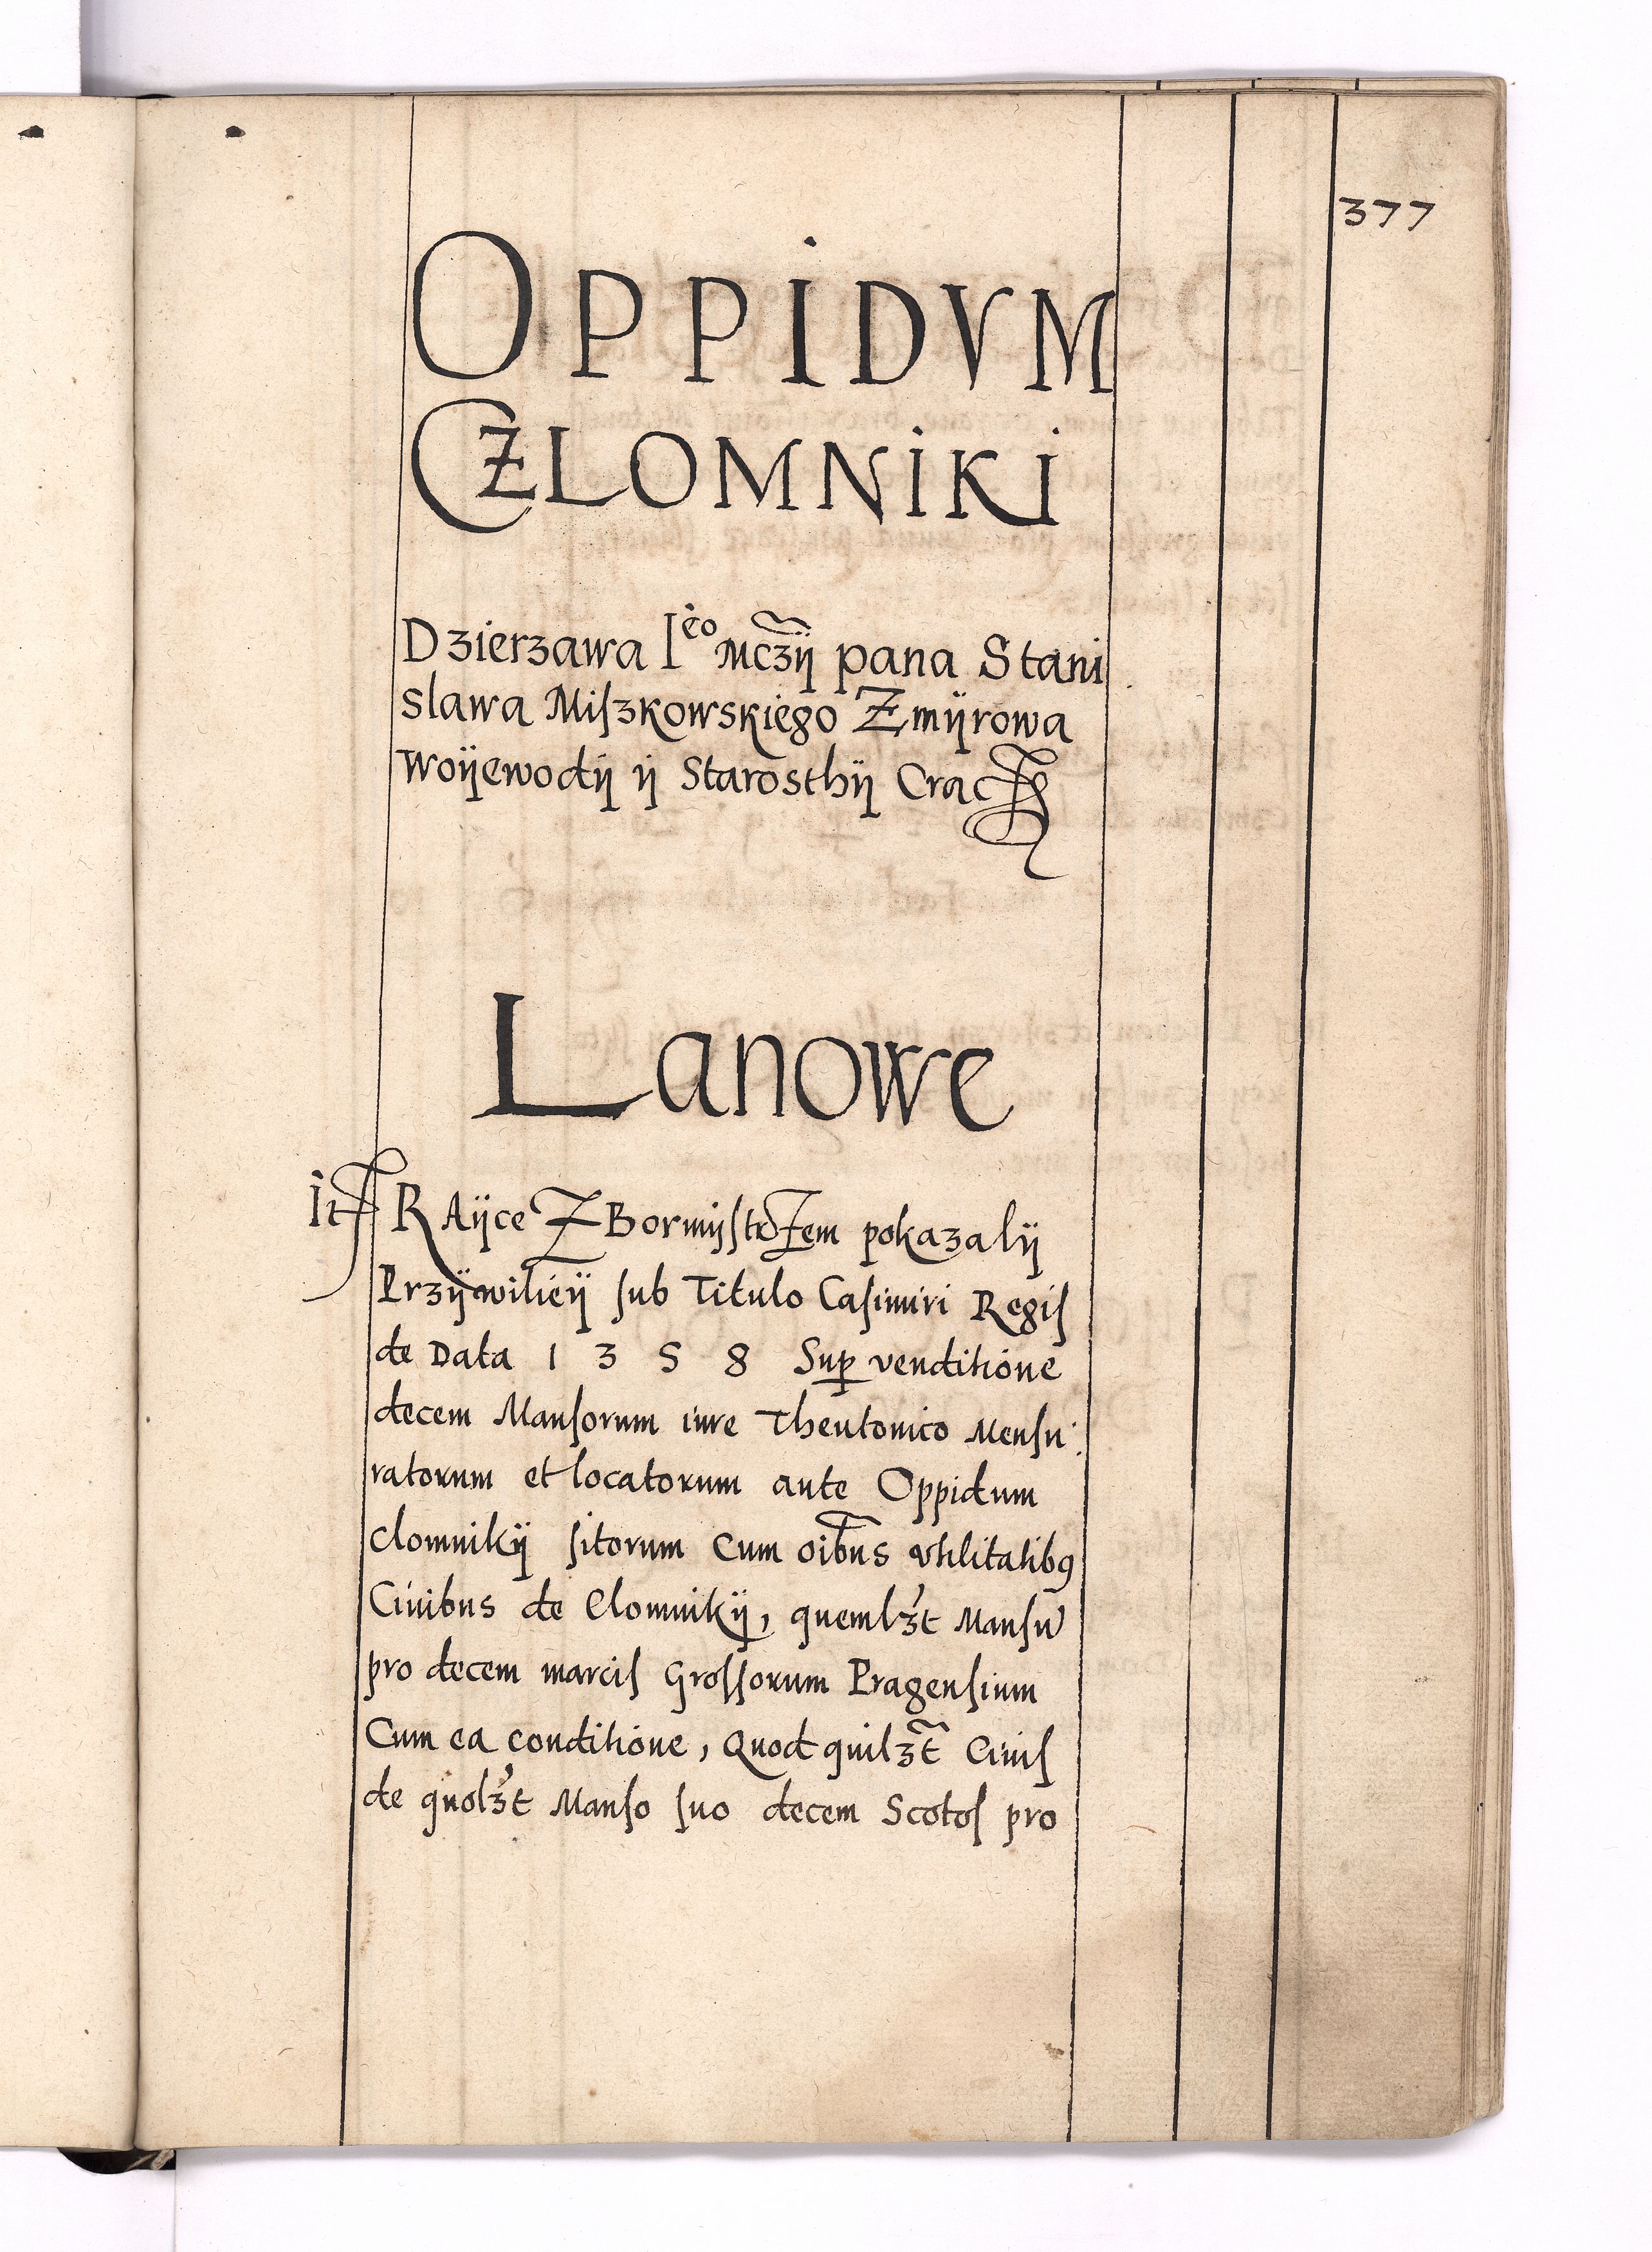 377
OPPIDVM
CZLOMNIKI
Dzierzawa I^eo Mczÿ pana Stani
slawa Miſzkowskiego Zmÿrowa
Woÿewodÿ ÿ Starosthÿ Crac
Lanowe
It RAÿce Z Bormÿſtrzem pokazalÿ
Przÿwilieÿ ſub Titulo Caſimiri Regiſ
de Data 1 3 5 8 Sup̲ venditione
decem Manſorum iure Theutonico Menſu
ratorum et locatorum ante Oppidum
clomnikÿ ſitorum Cum oib̃us vtilitatibꝯ
Ciuibus de Clomnikÿ, quemlꝫt Manſũ
pro decem marciſ Groſſorum Pragenſium
Cum ea conditione, Quod quilꝫt Ciuiſ
de quolꝫt Manſo ſuo decem Scotoſ pro